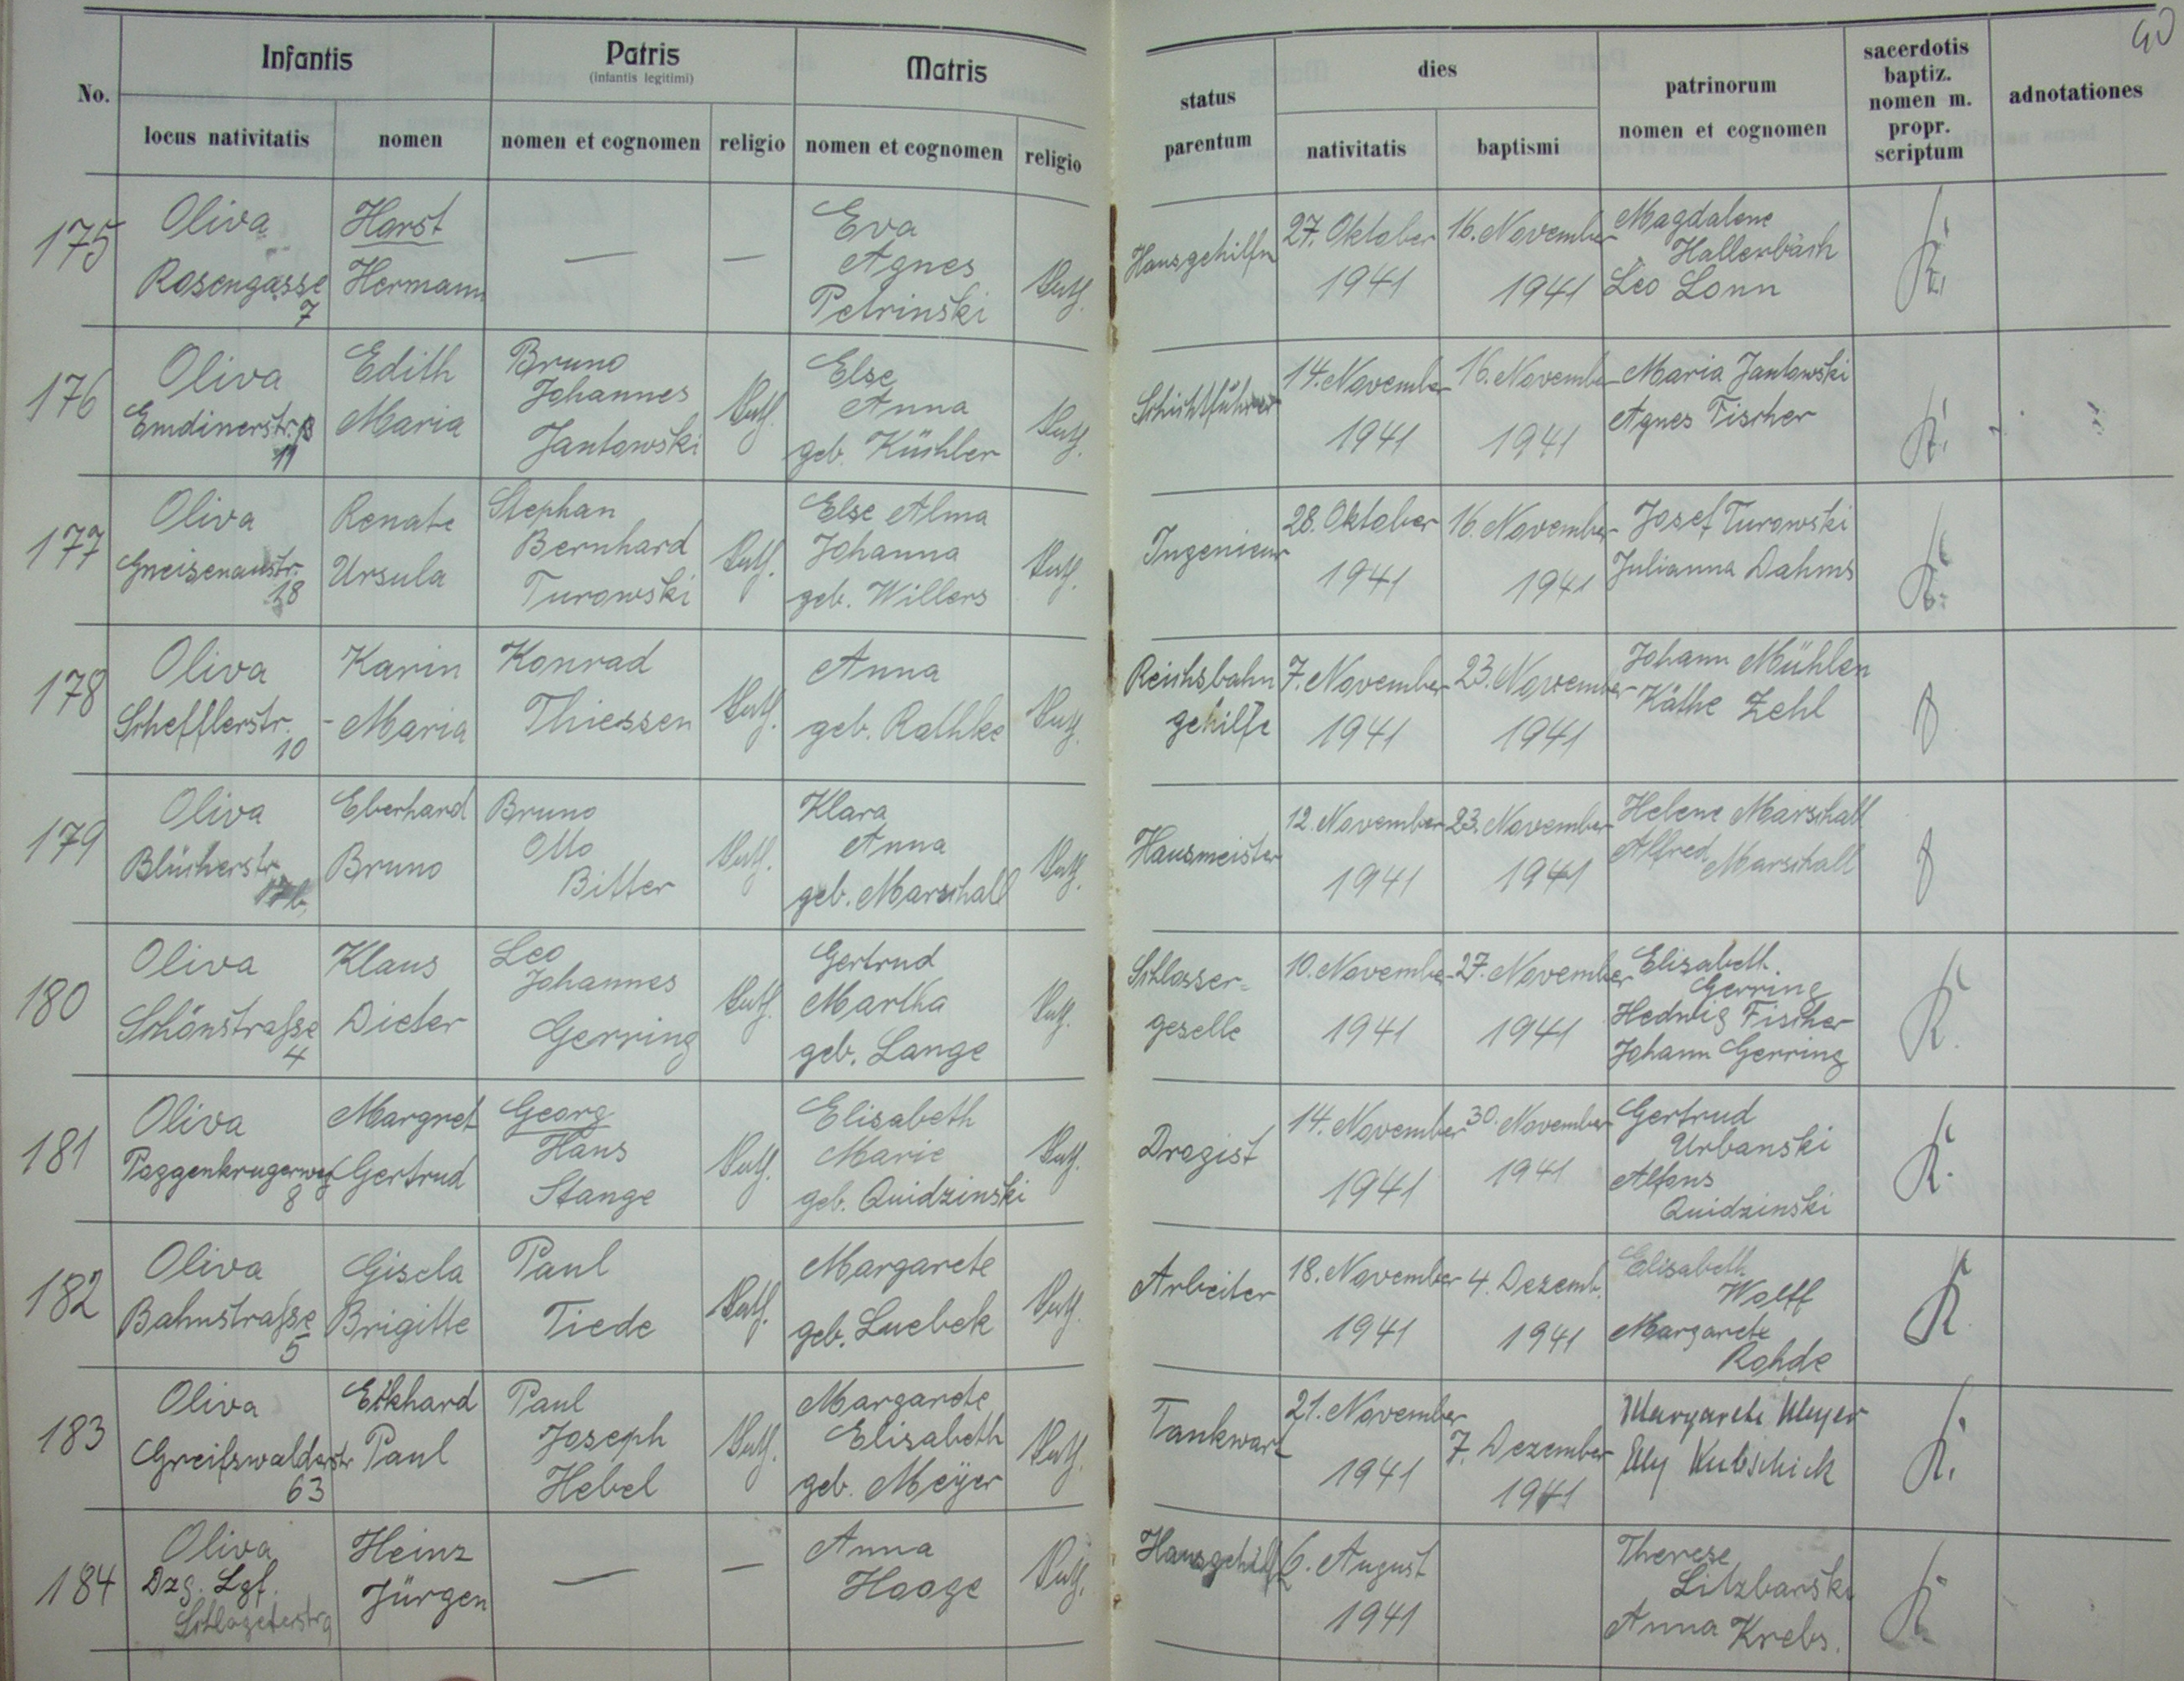 40
No.
Infantis
locus nativitatis
nomen
Patris
(infantis legitimi)
nomen et cognomen
religio
Matris
nomen et cognomen
religio
status
parentum
dies
nativitatis
baptismi
patrinorum
nomen et cognomen
sacerdotis
baptiz.
nomen m.
propr.
scriptum
adnotationes
175
Oliva
Rosengasse
7
Horst
Hermann
—
—
Eva
Agnes
Petrinski
kath.
Hausgehilfin
27. Oktober
1941
16. November
1941
Magdalene
Hallenbach
Leo Lonn
K.
176
Oliva
Emdinerstr.
11
Edith
Maria
Bruno
Johannes
Jantowski
kath.
Else
Anna
geb. Küchler
kath.
Schichtführer
14. November
1941
16. November
1941
Maria Jantowski
Agnes Fischer
K.
177
Oliva
Gneisenaustr.
18
Renate
Ursula
Stephan
Bernhard
Turowski
kath.
Else Alma
Johanna
geb. Willers
kath.
Ingenieur
28. Oktober
1941
16. November
1941
Josef Turowski
Julianna Dahms
K.
178
Oliva
Schefflerstr.
10
Karin
-Maria
Konrad
Thiessen
kath.
Anna
geb. Rathke
kath.
Reichsbahn
gehilfe
7. November
1941
23. November
1941
Johann Mühlen
Käthe Zehl
179
Oliva
Blücherstr.
17b,
Eberhard
Bruno
Bruno
Otto
Bitter
kath.
Klara
Anna
geb. Marschall
kath.
Hausmeister
12. November
1941
23. November
1941
Helene Marschall
Alfred Marschall
180
Oliva
Schönstraße
4
Klaus
Dieter
Leo
Johannes
Gerring
kath.
Gertrud
Martha
geb. Lange
kath.
Schlosser-
geselle
10. November
1941
27. November
1941
Elisabeth
Gerring
Hedwig Fischer
Johann Gerring
K.
181
Oliva
Poggenkrugerweg
8
Margret
Gertrud
Georg
Hans
Stange
kath.
Elisabeth
Marie
geb. Quidzinski
kath.
Drogist
14. November
1941
30. November
1941
Gertrud
Urbanski
Alfons
Quidzinski
K.
182
Oliva
Bahnstraße
5
Gisela
Brigitte
Paul
Tiede
kath.
Margarete
geb. Luebek
kath.
Arbeiter
18. November
1941
4. Dezemb.
1941
Elisabeth
Wolff
Margarete
Rohde
K
183
Oliva
Greifswalderstr
63
Eckhard
Paul
Paul
Joseph
Hebel
kath.
Margarete
Elisabeth
geb. Meÿer
kath.
Tankwart
21. November
1941
7. Dezember
1941
Margarete Meyer
Kubschick
K.
184
Oliva
Dzg. Lgf.
Heinz
Jürgen
—
—
Anna
Hooge
kath.
Hausgehilf
6. August
1941
Therese
Litzbarski
Anna Krebs.
K